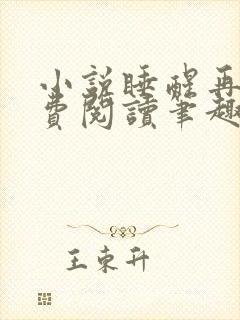 小說睡醒再
費閱讀筆趣
王東升